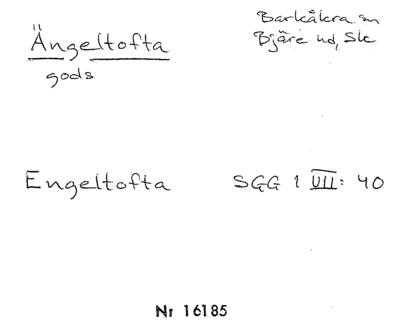 Ängeltofta
gods
Barkåkra sn
Bjäre hd, Sk
Engeltofta
SGG 1 VII: 40
Nr 16185